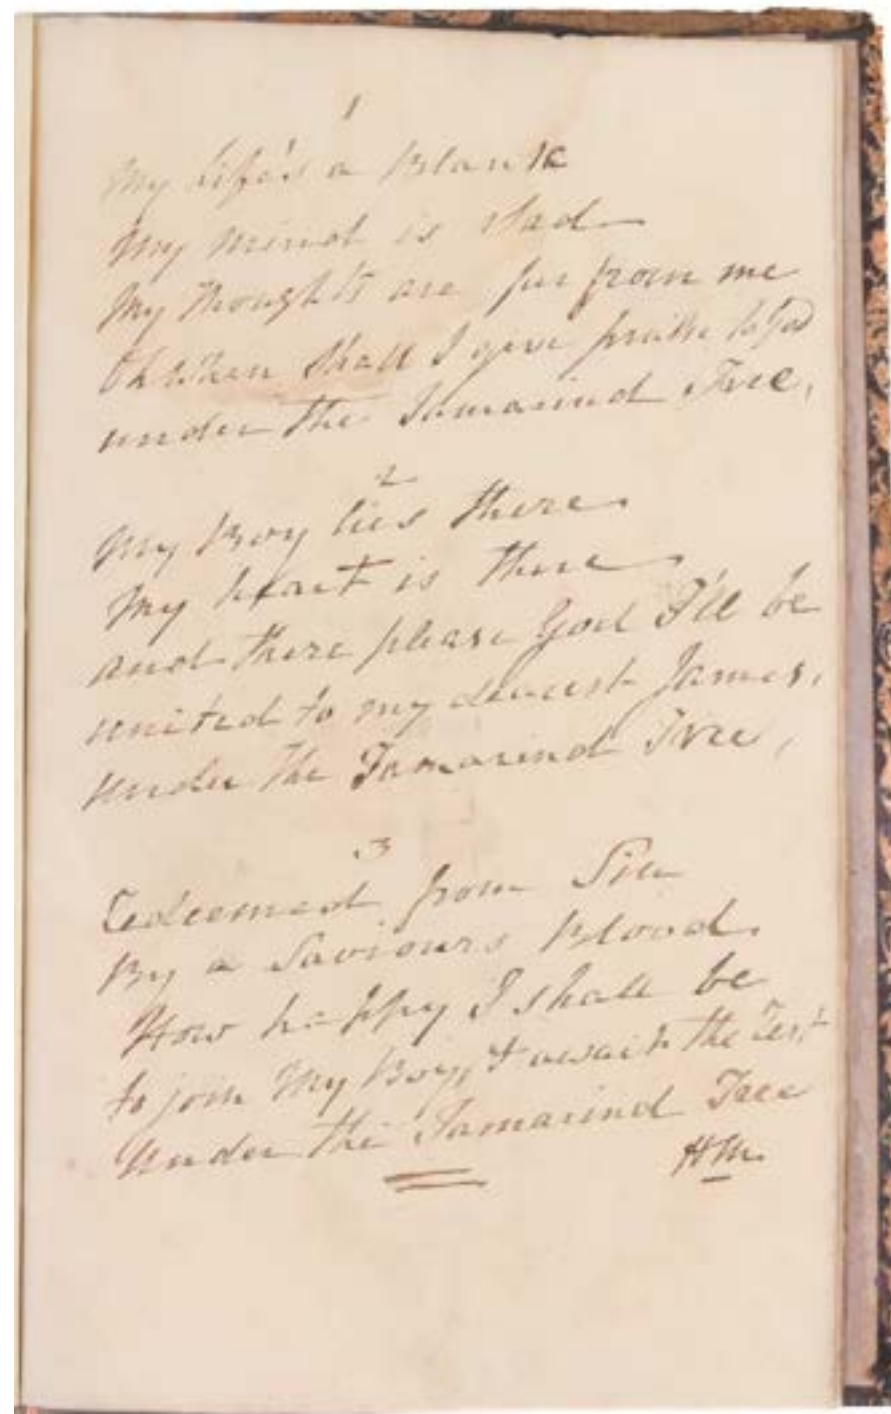 1
My Life's a Blank
My mind is Sad
My thoughts are far from me
Oh When Shall I give praise to God
under the Tamarind Tree,
2
My Boy lies there
My heart is there
and there please God I'll be
united to my dearest James,
Under the Tamarind Tree,
3
Redeemed from Sin
By a Saviours Blood
How happy I shall be
to join My Boy, & await the Test
Under the Tamarind Tree
HM.